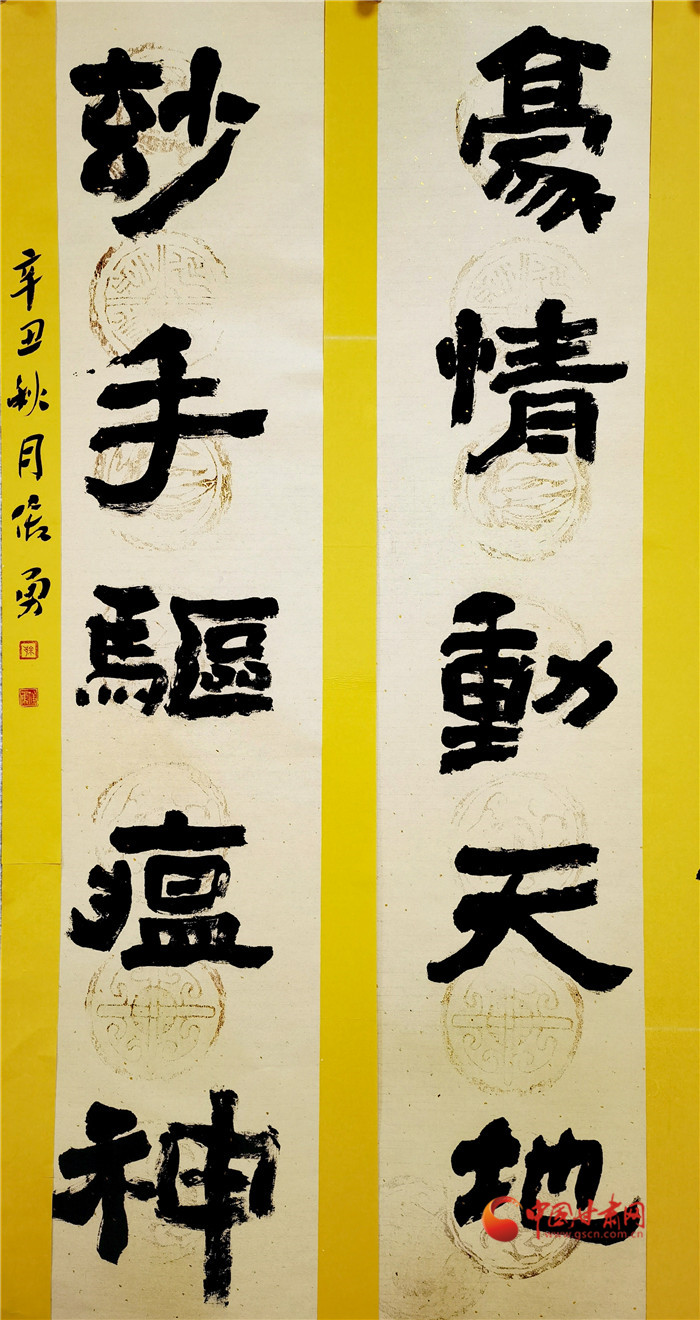 豪情動天地
玅手驅瘟神
辛丑秋月
勇
中国甘肃网
www.gscn.com.cn